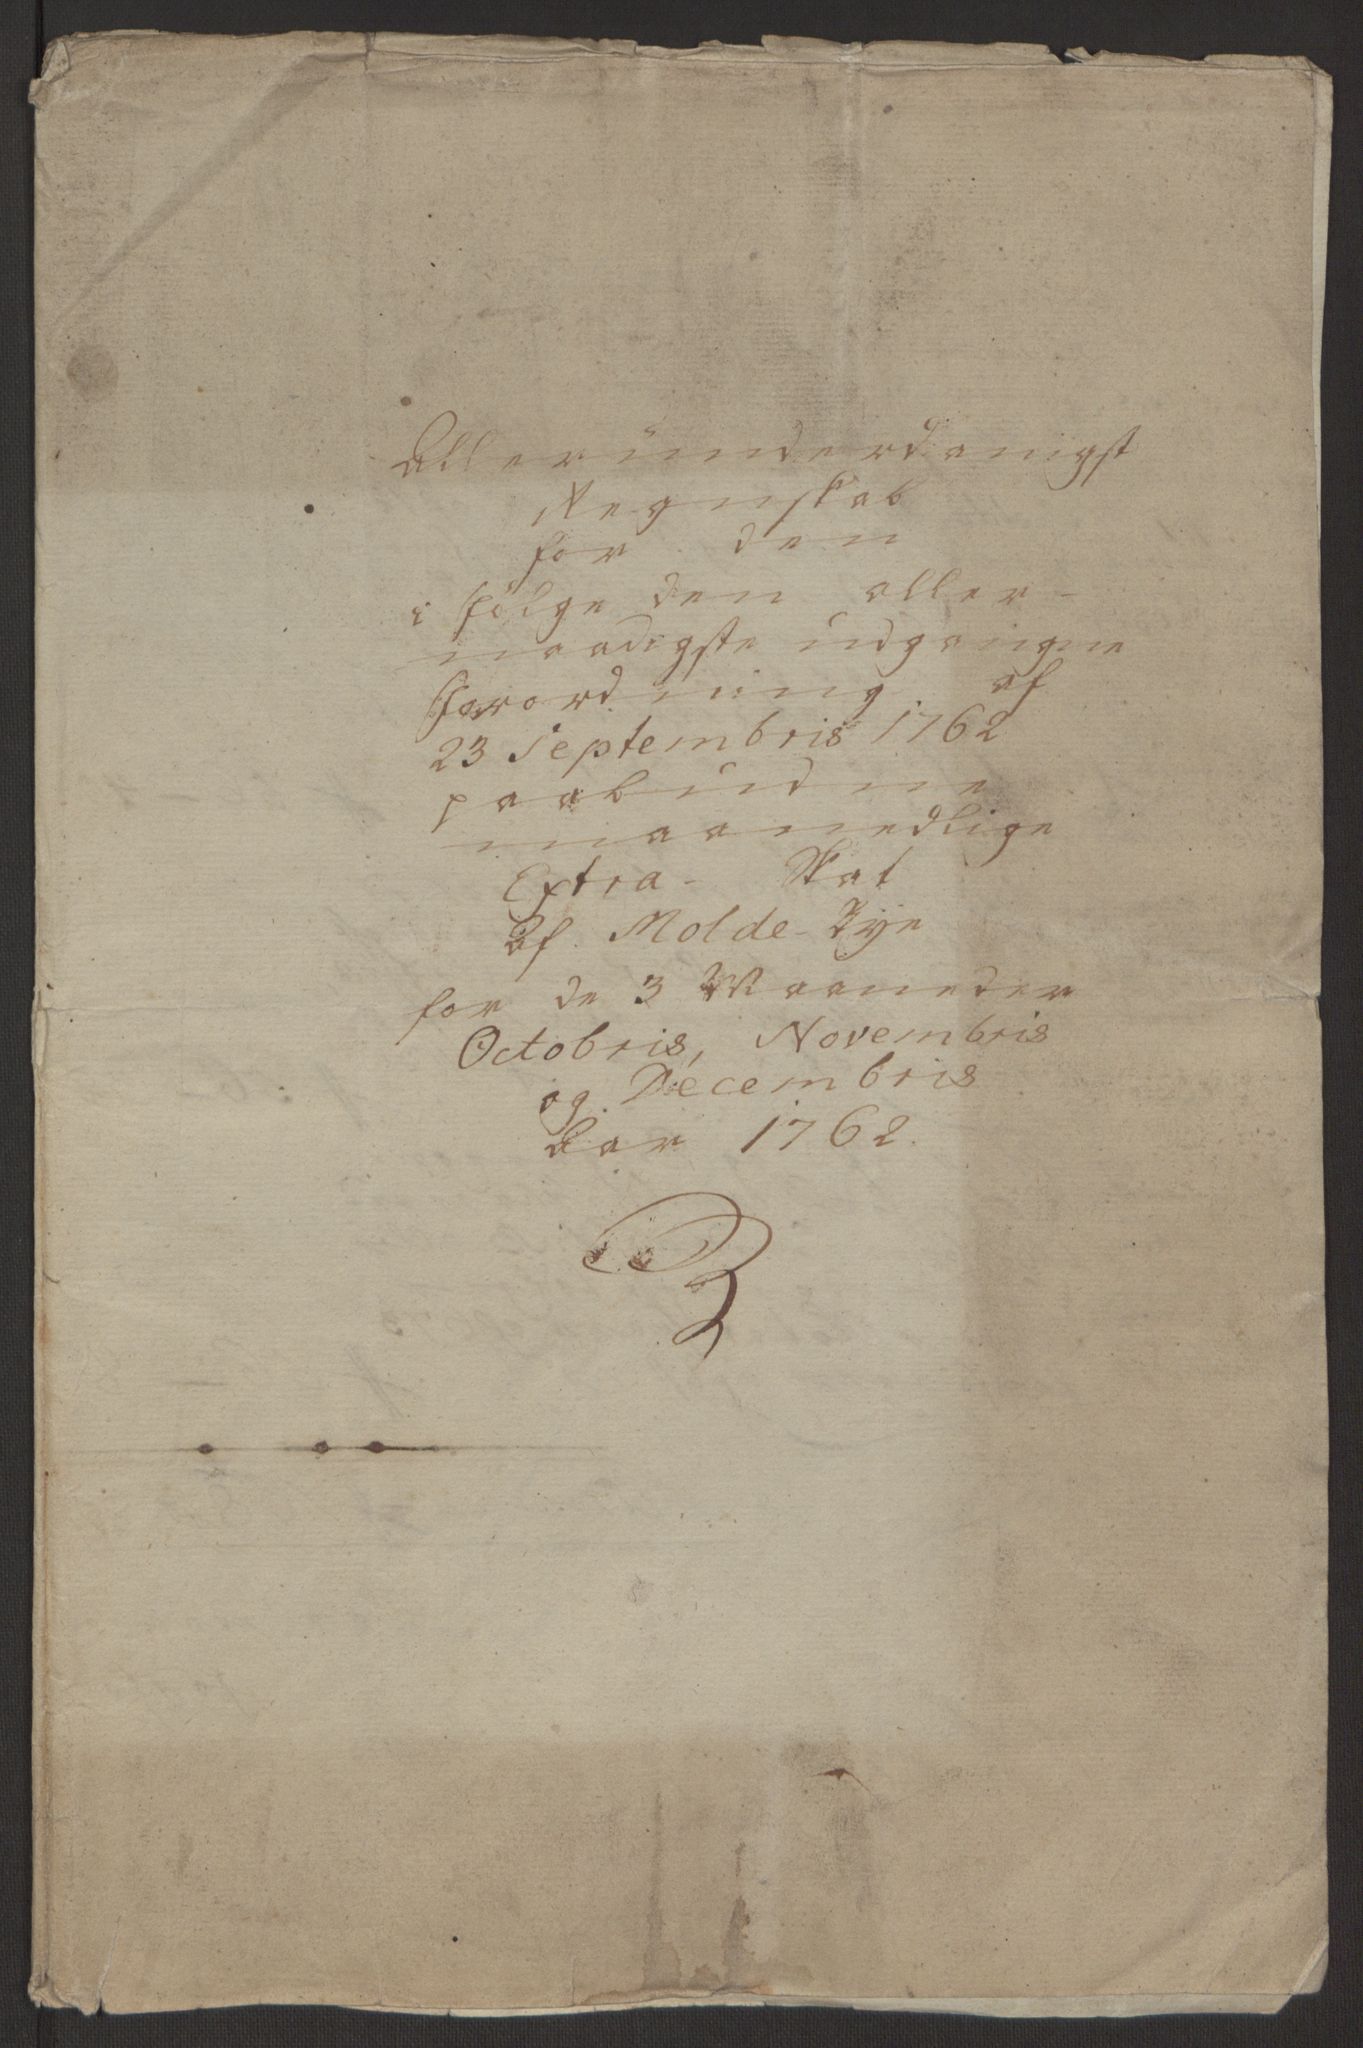 Alleründerdanigst
Regnskab
for den
i Fölge den aller-
naadigste udgangne
Forordning af
23 Septembris 1762
paabudne
maanedlige
Extra- Skat
Af Molde-Bye
for de 3 Maaneder
Octobris, Novembris
og Decembris
Aar 1762.